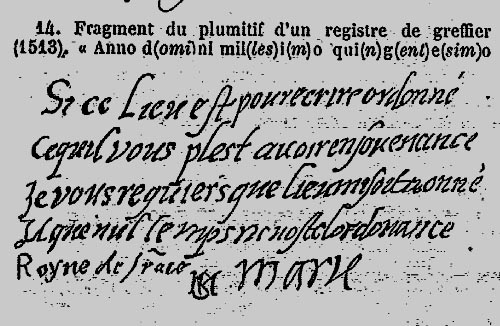 14. Fragment du plumitif d'un registre de greffier
(1513). « Anno d(omi)ni mil(les)i(m)o qui(n)g(ent)e(sim)o
Si ce Lieu est pour ecrire ordonné
Cequil vous plest auoir ensouuenance
Je vous requiers que lieu mi soit donné
Et que nul temps nenoste lordonance
Royne de france Marie